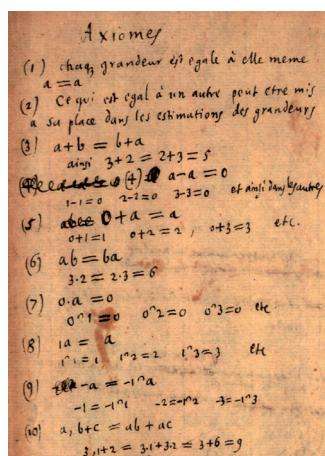 Axiomes
(1) chaq; grandeur est egale à elle meme
a = a
(2) Ce qui est egal à un autre peut etre mis
a sa place dans les estimations des grandeurs
(3) a+b = b+a
ainsi 3+2 = 2+3 = 5
(4) a-a = 0
1-1=0 2-2=0 3-3=0 et ainsi dans les autres
(5) 0+a = a
0+1=1 0+2=2, 0+3=3 etc.
(6) ab = ba
3·2 = 2·3 = 6
(7) 0·a = 0
0^1=0 0^2=0 0^3=0 etc
(8) 1a = a
1^1=1 1^2=2 1^3=3 etc
(9) -a = -1^a
-1=-1^1 -2=-1^2 -3=-1^3
(10) a, b+c = ab + ac
3, 1+2 = 3·1+3·2 = 3+6 = 9